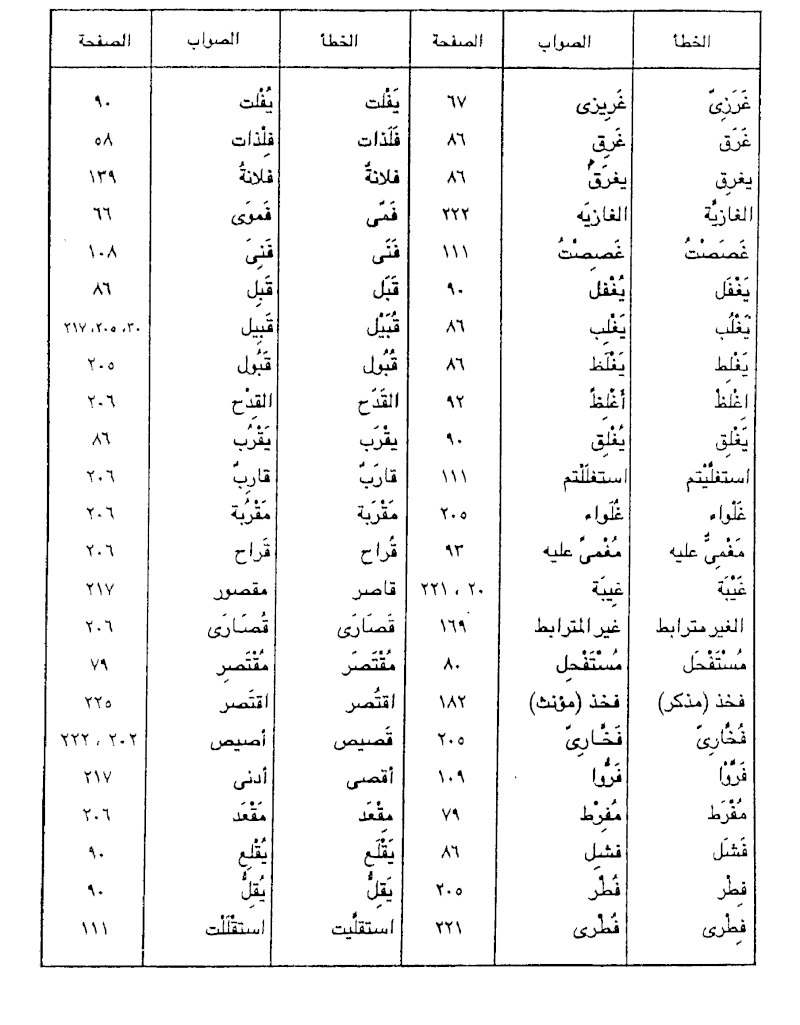 الخطأ الصواب الصفحة الخطأ الصواب الصفحة
غَرَزِىّ غَرِيزى ٦٧ يَفْلت يُفْلت ٩٠
غَرَق غَرِق ٨٦ فَلَذات فِلْذات ٥٨
يغرِق يغرَقُ ٨٦ فلانةٌ فلانةُ ١٣٩
الغازيَّة الغازيَه ٢٢٢ فَمّى فَموَى ٦٦
غَصَصْتُ غَصِصْتُ ١١١ فَنَى فَنِىَ ١٠٨
يَغْفَل يُغْفل ٩٠ قَبَل قَبِل ٨٦
يَغْلُب يَغْلِب ٨٦ قُبَيْل قَبِيل ٣٠، ٢٠٥، ٢١٧
يَغْلِط يَغْلَظ ٨٦ قُبُول قَبُول ٢٠٥
اِغْلظْ أغْلظْ ٩٢ القَدَح القِدْح ٢٠٦
يَغْلِق يُغْلِق ٩٠ يقْرَب يَقْرُب ٨٦
استغلَّيْتم استغلَلْتم ١١١ قارَبٌ قارِبٌ ٢٠٦
غَلْواء غُلَواء ٢٠٥ مَقْرَبة مَقْرُبة ٢٠٦
مَغْمِىٌّ عليه مُغْمىً عليه ٩٣ قُراح قَراح ٢٠٦
غَيْبَة غِيبَة ٢٠ ، ٢٢١ قاصر مقصور ٢١٧
الغير مترابط غير المترابط ١٦٩ قَصَارَى قُصَارَى ٢٠٦
مُسْتَفْحَل مُسْتَفْحِل ٨٠ مُقْتَصَر مُقْتَصِر ٧٩
فخذ (مذكر) فخذ (مؤنث) ١٨٢ اقتُصر اقتَصر ٢٢٥
فُخَّارِىّ فَخَّارِىّ ٢٠٥ قَصيص أصيص ٢٠٢ ، ٢٢٢
فَرَّوْا فَرُّوا ١٠٩ أقصى أدنى ٢١٧
مُفْرَط مُفرِط ٧٩ مِقْعَد مَقْعَد ٢٠٦
فَشَل فشِل ٨٦ يَقْلَع يُقْلِع ٩٠
فِطْر فُطْر ٢٠٥ يَقِلُّ يُقِلُّ ٩٠
فِطْرى فُطْرى ٢٢١ استقلَّيت استقْلَلْت ١١١